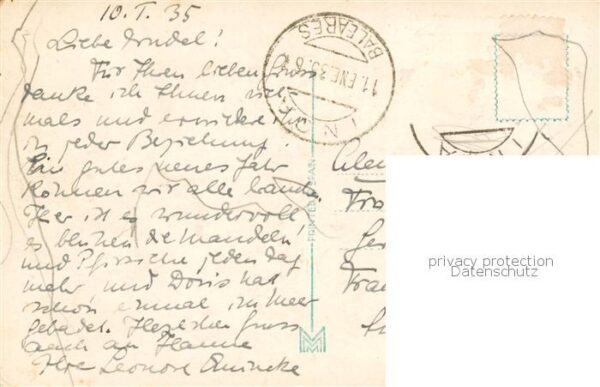 10. I. 35
Liebe Trudel!
Für Ihren lieben Gruss
danke ich Ihnen viel
mals und erwidere
in jeder Beziehung.
Ein gutes neues Jahr
können wir alle brauchen.
Hier ist es wundervoll,
es blühen die Mandeln
und Pfirsiche jeden Tag
mehr und Doris hat
schon einmal im Meer
gebadet. Herzlichen Gruss
auch an Hanne
Ihre Leonore
BALEARES
11 ENE 35
INCA
PRINTED SPAIN
M
Fra
privacy protection
Datenschutz